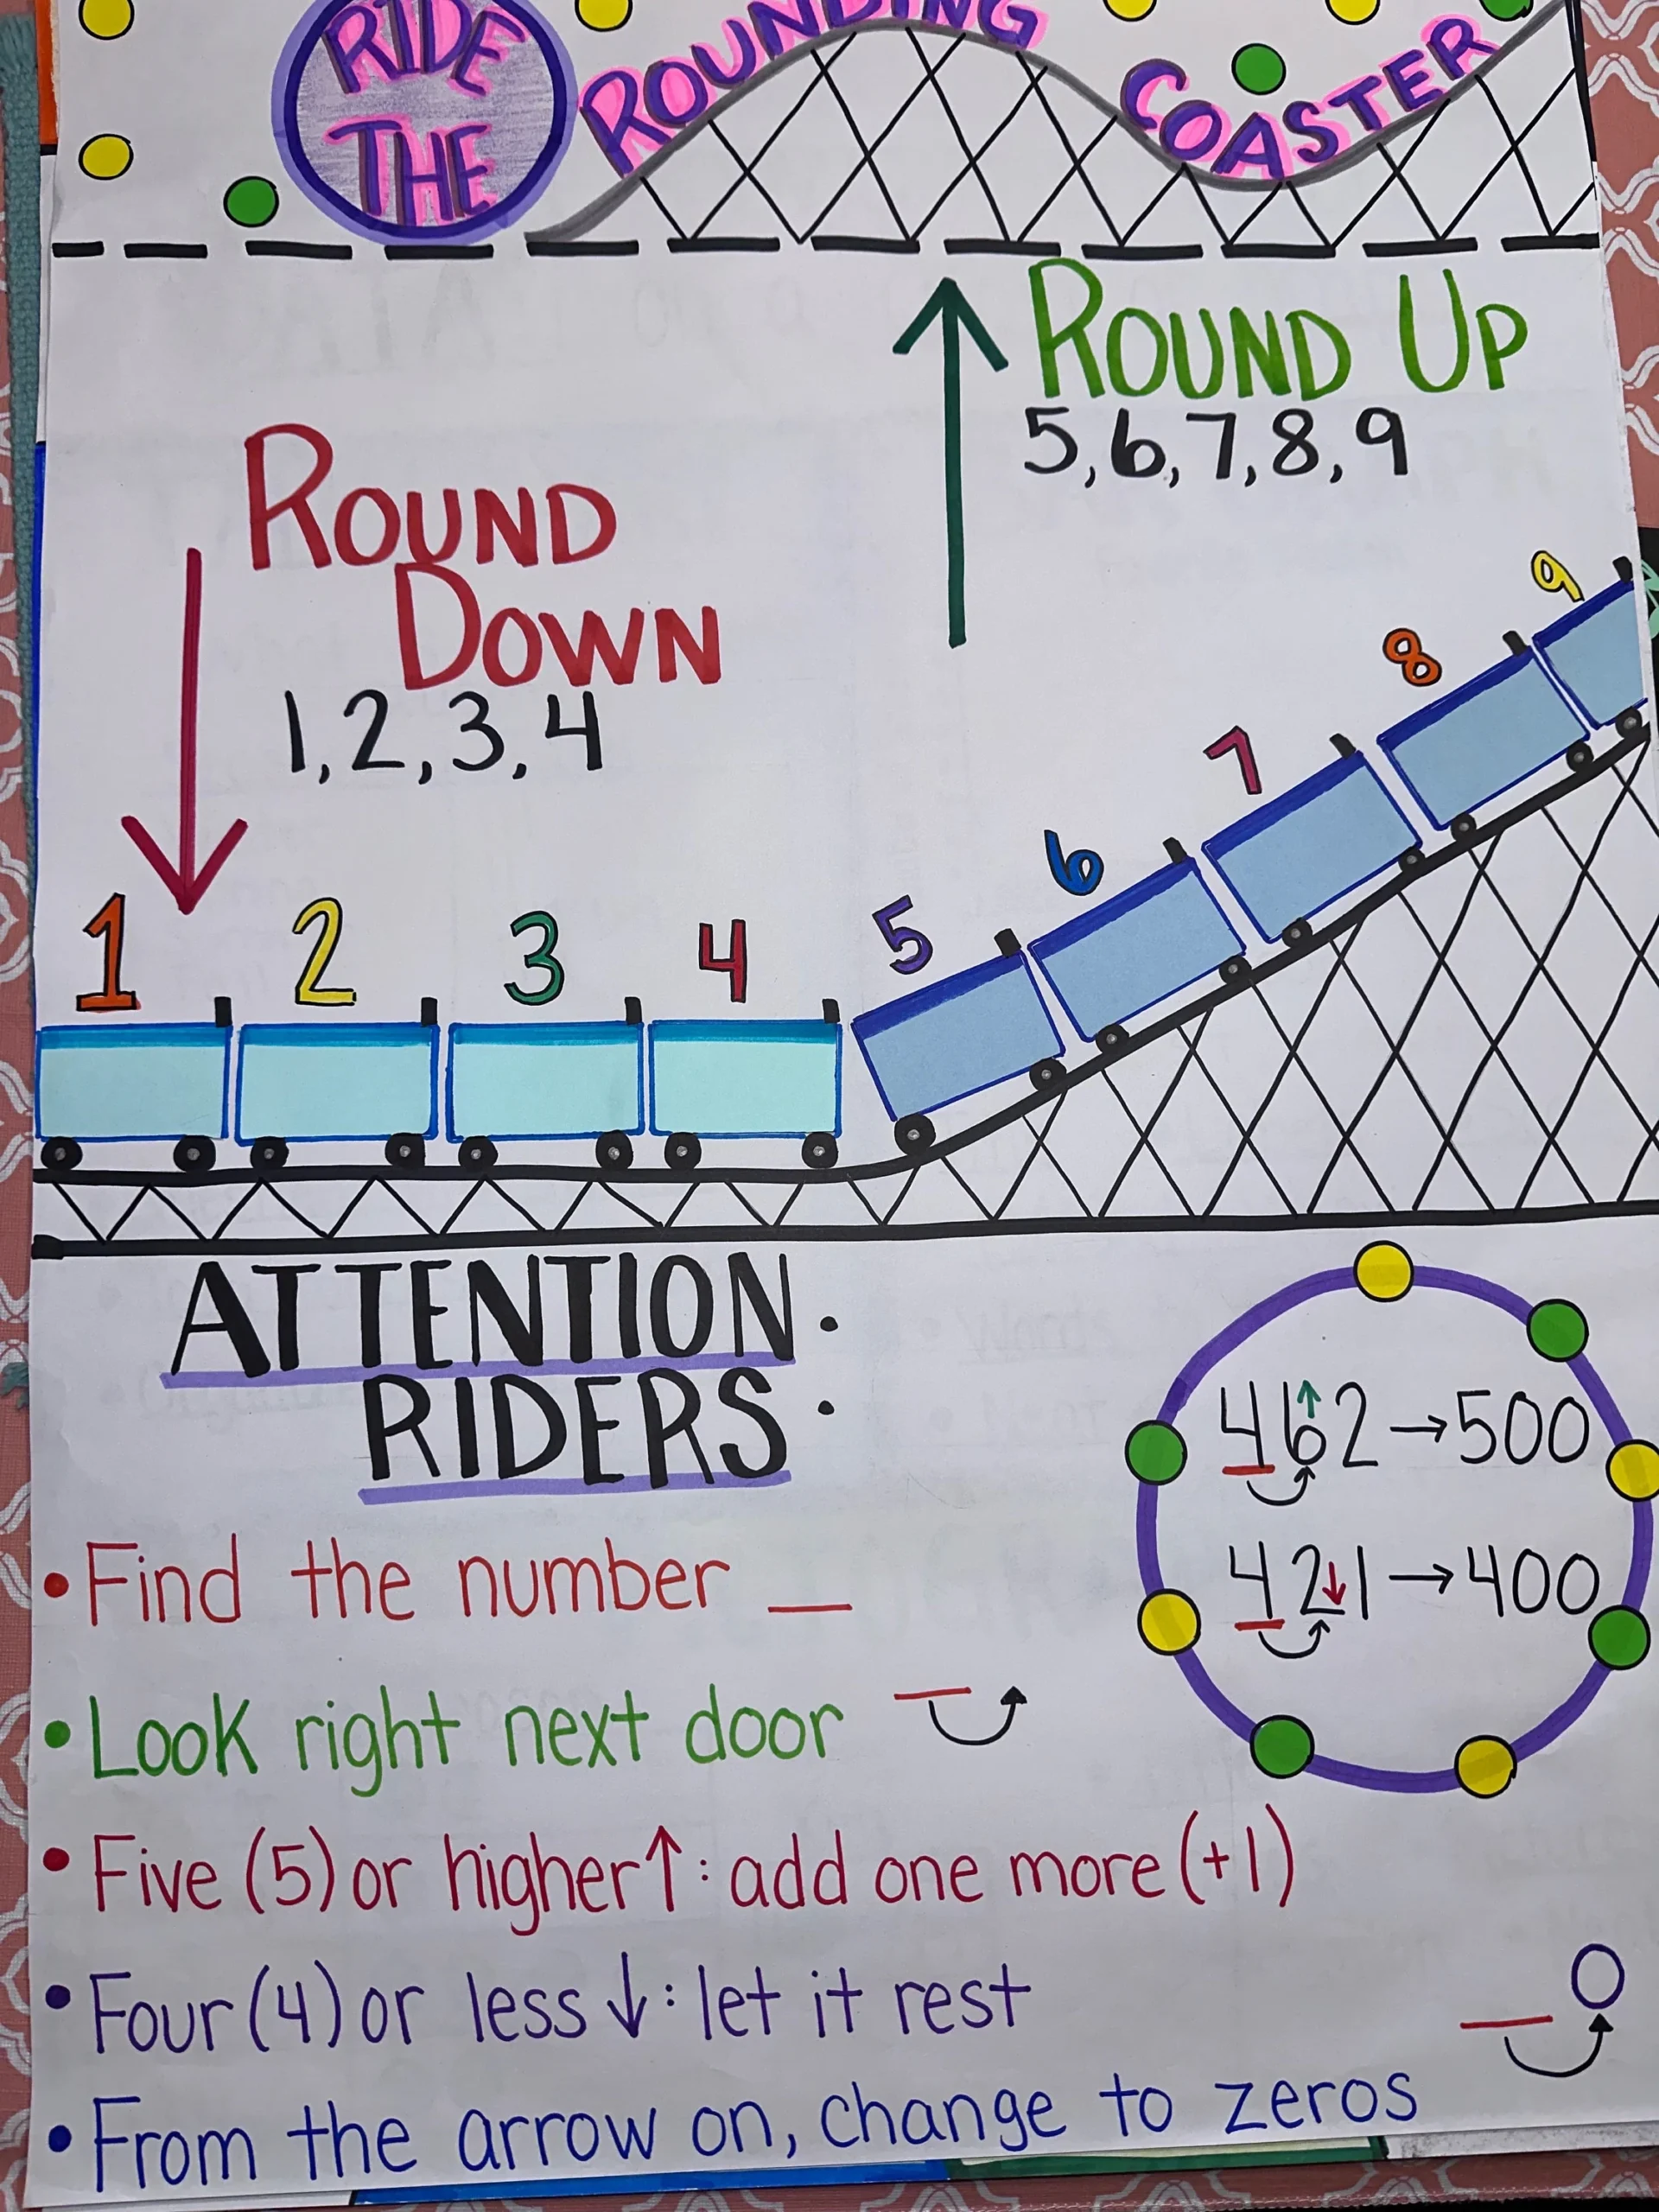 RIDE
THE
ROUNDING
COASTER
ROUND UP
5, 6, 7, 8, 9
ROUND
DOWN
1, 2, 3, 4
1 2 3 4 5 6 7 8 9
ATTENTION
RIDERS:
462 → 500
421 → 400
• Find the number __
• Look right next door __
• Five (5) or higher ↑: add one more (+1)
• Four (4) or less ↓: let it rest
__ 0
• From the arrow on, change to zeros